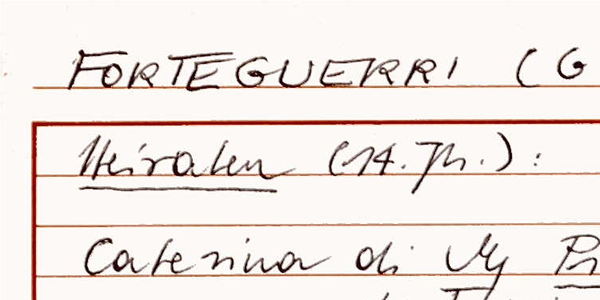 FORTEGUERRI (G
Heiraten (14. Jh.):
Caterina di Ug